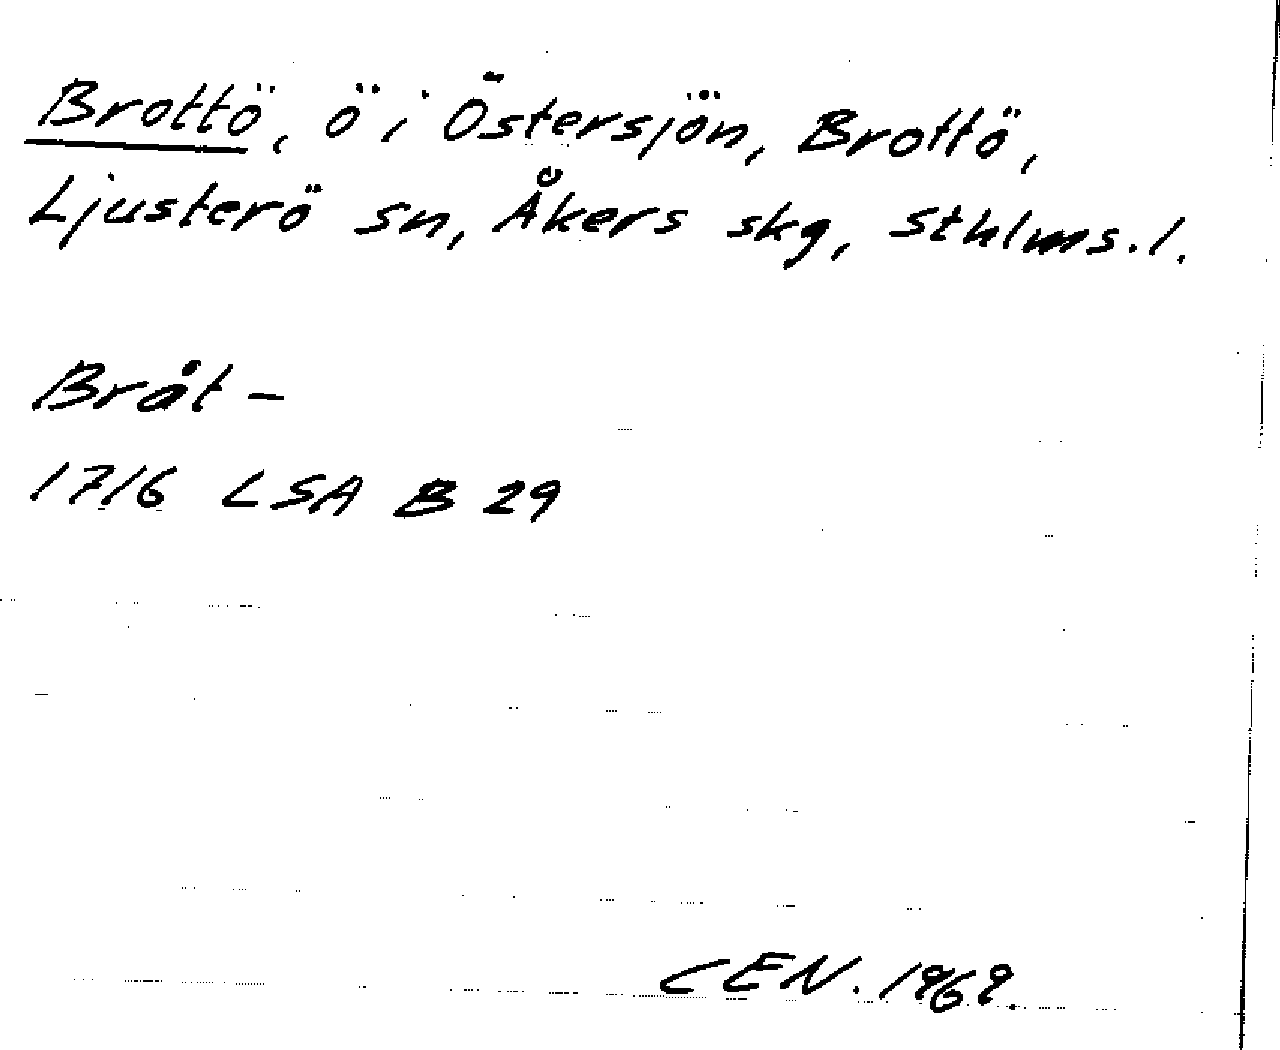 Brottö, ö i Östersjön, Brottö,
Ljusterö sn, Åkers skg, Sthlms.l.
Bråt-
1716 LSA B 29
CEN. 1969.